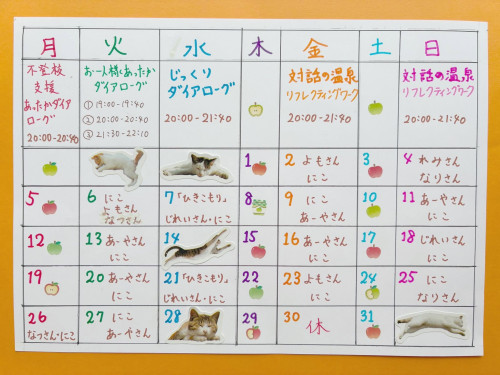 月 火 水 木 金 土 日
不登校
支援
あったかダイア
ローグ
20:00-20:40
お一人様あったか
ダイアローグ
① 19:00-19:40
② 20:00-20:40
③ 21:30-22:10
じっくり
ダイアローグ
20:00-21:40
対話の温泉
リフレクティングワーク
20:00-21:40
対話の温泉
リフレクティングワーク
20:00-21:40
1
2 よもさん
にこ
3
4 れみさん
なりさん
5
6 にこ
よもさん
なつさん
7 「ひきこもり」
じれいさん・にこ
8
9 にこ
あーやさん
10
11 あーやさん
にこ
12
13 あーやさん
にこ
14
15
16 あーやさん
にこ
17
18 じれいさん
にこ
19
20 あーやさん
にこ
21 「ひきこもり」
じれいさん・にこ
22
23 よもさん
にこ
24
25 にこ
なりさん
26
なつさん・にこ
27 にこ
あーやさん
28
29
30
休
31